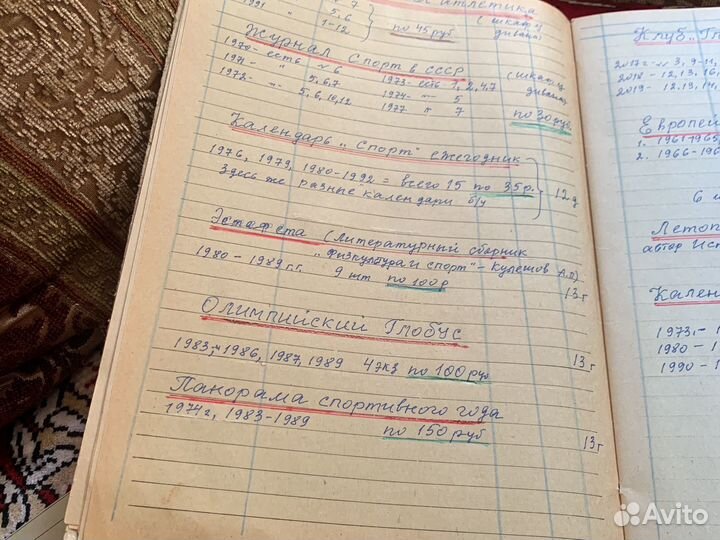 атлетика
1991 " 7
5.6
1-12
по 45 руб
(шкафу
дивана)
Журнал Спорт в СССР
1970 - есть № 6
1971 - " 5,6,7
1972 - " 5,6,10,12
1973 - есть 1,2,4,7
1974 - " 5
1977 " 7
(шкафу
дивана)
по 30 руб.
Календарь „Спорт" ежегодник
1976, 1979, 1980-1992 = всего 15 по 35 р.
Здесь же разные календари б/у
12 д
Эстафета (Литературный сборник
„Физкультура и спорт" - Кулешов А.П)
1980 - 1989 г.г. 9 шт по 100 р
13 г
Олимпийский Глобус
1983, 1986, 1987, 1989 4 экз по 100 руб
13 г
Панорама спортивного года
1974 г, 1983-1989 по 150 руб
13 г
Клуб „
2017г - № 3, 9-11,
2018 - 12, 13, 16,
2019 - 12, 13, 14,
Европей
1. 1961-1965
2. 1966-196
6
Летоп
автор Ист
Кален
1973 - 1
1980 - 1
1990 - 1
Avito